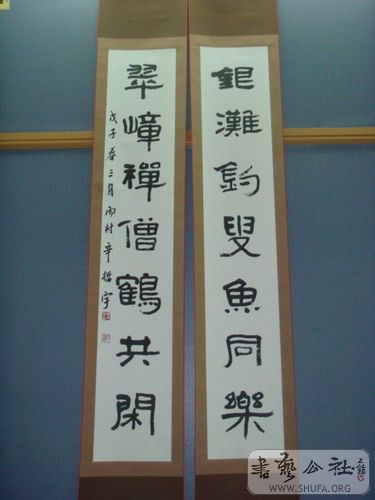 銀灘釣叟魚同樂
翠嶂禪僧鶴共閑
戊子春三月雨村辛哲宇
書藝公社
WWW.SHUFA.ORG